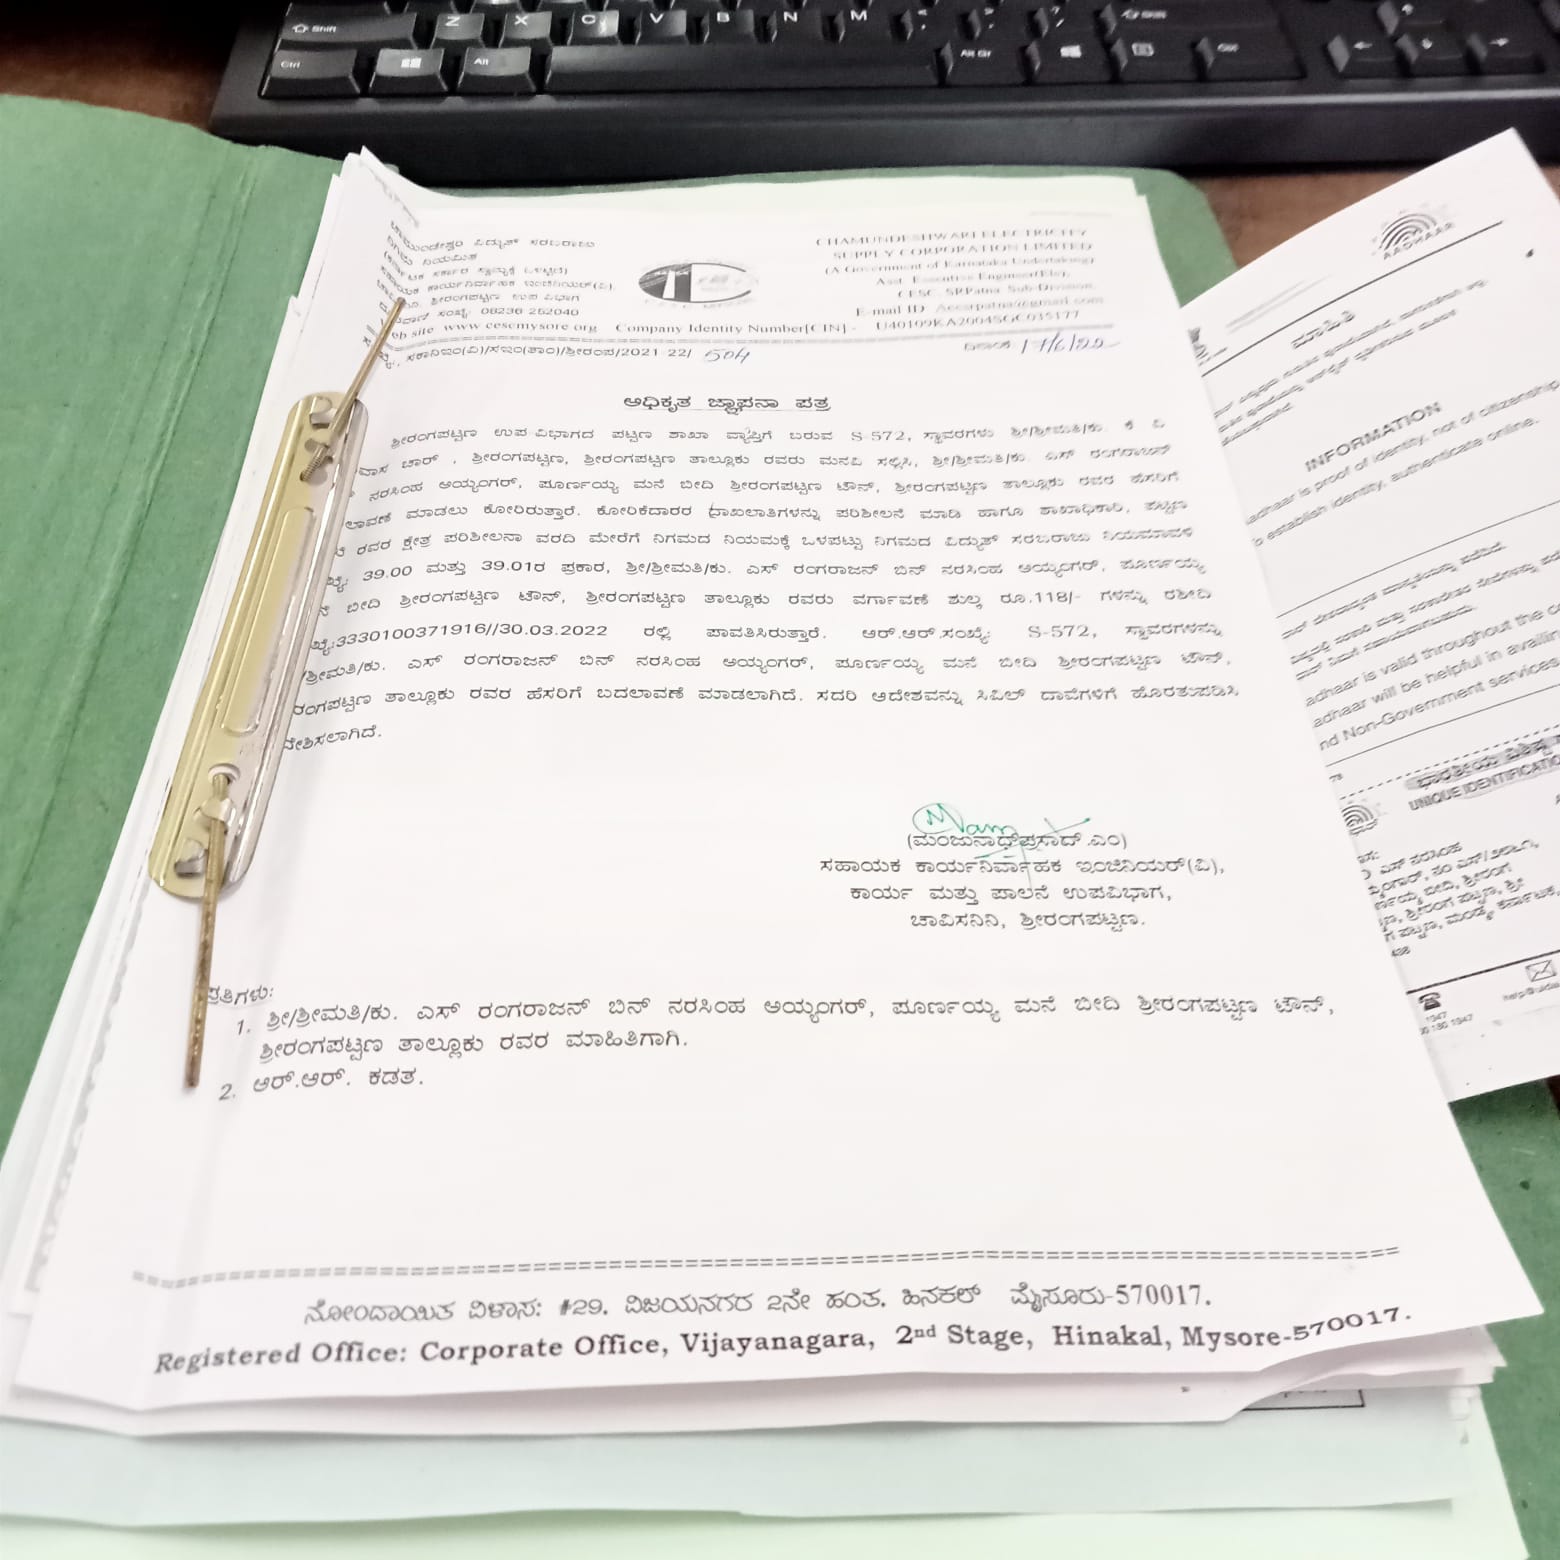 ಚಾಮುಂಡೇಶ್ವರಿ ವಿದ್ಯುತ್ ಸರಬರಾಜು
ನಿಗಮ ನಿಯಮಿತ
(ಕರ್ನಾಟಕ ಸರ್ಕಾರ ಸ್ವಾಮ್ಯಕ್ಕೆ ಒಳಪಟ್ಟಿದೆ)
ಸಹಾಯಕ ಕಾರ್ಯನಿರ್ವಾಹಕ ಇಂಜಿನಿಯರ್(ವಿ),
ಶ್ರೀರಂಗಪಟ್ಟಣ ಉಪ ವಿಭಾಗ
ಸಂಖ್ಯೆ: 08236 252040
CHAMUNDESHWARI ELECTRICITY
SUPPLY CORPORATION LIMITED
(A Government of Karnataka Undertaking)
Asst. Executive Engineer(Ele),
CESC, SRPatna Sub-Division,
E-mail ID
site www cescmysore org Company Identity Number[CIN] - U40109KA2004SGC035177
ಸಕಾನಿಇಂ(ವಿ)/ಸಇಂ(ತಾಂ)/ಶ್ರೀರಂಪ/2021 22/ 504 ದಿನಾಂಕ 17/6/22
ಅಧಿಕೃತ ಜ್ಞಾಪನಾ ಪತ್ರ
ಶ್ರೀರಂಗಪಟ್ಟಣ ಉಪ ವಿಭಾಗದ ಪಟ್ಟಣ ಶಾಖಾ ವ್ಯಾಪ್ತಿಗೆ ಬರುವ S-572, ಸ್ಥಾವರಗಳು ಶ್ರೀ/ಶ್ರೀಮತಿ/ಕು. ಕೆ ವಿ
ವಾಸ ಚಾರ್ , ಶ್ರೀರಂಗಪಟ್ಟಣ, ಶ್ರೀರಂಗಪಟ್ಟಣ ತಾಲ್ಲೂಕು ರವರು ಮನವಿ ಸಲ್ಲಿಸಿ, ಶ್ರೀ/ಶ್ರೀಮತಿ/ಕು. ಎಸ್ ರಂಗರಾಜನ್
ನರಸಿಂಹ ಅಯ್ಯಂಗರ್, ಪೂರ್ಣಯ್ಯ ಮನೆ ಬೀದಿ ಶ್ರೀರಂಗಪಟ್ಟಣ ಟೌನ್, ಶ್ರೀರಂಗಪಟ್ಟಣ ತಾಲ್ಲೂಕು ರವರ ಹೆಸರಿಗೆ
ಲಾವಣೆ ಮಾಡಲು ಕೋರಿರುತ್ತಾರೆ. ಕೋರಿಕೆದಾರರ ದಾಖಲಾತಿಗಳನ್ನು ಪರಿಶೀಲನೆ ಮಾಡಿ ಹಾಗೂ ಶಾಖಾಧಿಕಾರಿ, ಪಟ್ಟಣ
ರವರ ಕ್ಷೇತ್ರ ಪರಿಶೀಲನಾ ವರದಿ ಮೇರೆಗೆ ನಿಗಮದ ನಿಯಮಕ್ಕೆ ಒಳಪಟ್ಟು ನಿಗಮದ ವಿದ್ಯುತ್ ಸರಬರಾಜು ನಿಯಮಾವಳಿ
39.00 ಮತ್ತು 39.01ರ ಪ್ರಕಾರ, ಶ್ರೀ/ಶ್ರೀಮತಿ/ಕು. ಎಸ್ ರಂಗರಾಜನ್ ಬಿನ್ ನರಸಿಂಹ ಅಯ್ಯಂಗರ್, ಪೂರ್ಣಯ್ಯ
ಬೀದಿ ಶ್ರೀರಂಗಪಟ್ಟಣ ಟೌನ್, ಶ್ರೀರಂಗಪಟ್ಟಣ ತಾಲ್ಲೂಕು ರವರು ವರ್ಗಾವಣೆ ಶುಲ್ಕ ರೂ.118/- ಗಳನ್ನು ರಶೀದಿ
ಖ್ಯೆ:3330100371916//30.03.2022 ರಲ್ಲಿ ಪಾವತಿಸಿರುತ್ತಾರೆ. ಆರ್.ಆರ್.ಸಂಖ್ಯೆ: S-572, ಸ್ಥಾವರಗಳನ್ನು
/ಶ್ರೀಮತಿ/ಕು. ಎಸ್ ರಂಗರಾಜನ್ ಬಿನ್ ನರಸಿಂಹ ಅಯ್ಯಂಗರ್, ಪೂರ್ಣಯ್ಯ ಮನೆ ಬೀದಿ ಶ್ರೀರಂಗಪಟ್ಟಣ ಟೌನ್,
ರಂಗಪಟ್ಟಣ ತಾಲ್ಲೂಕು ರವರ ಹೆಸರಿಗೆ ಬದಲಾವಣೆ ಮಾಡಲಾಗಿದೆ. ಸದರಿ ಆದೇಶವನ್ನು ಸಿವಿಲ್ ದಾವೆಗಳಿಗೆ ಹೊರತುಪಡಿಸಿ
ದೇಶಿಸಲಾಗಿದೆ.
(ಮಂಜುನಾಥ್‌ಪ್ರಸಾದ್.ಎಂ)
ಸಹಾಯಕ ಕಾರ್ಯನಿರ್ವಾಹಕ ಇಂಜಿನಿಯರ್(ವಿ),
ಕಾರ್ಯ ಮತ್ತು ಪಾಲನೆ ಉಪವಿಭಾಗ,
ಚಾವಿಸನಿನಿ, ಶ್ರೀರಂಗಪಟ್ಟಣ.
ಪ್ರತಿಗಳು:
1. ಶ್ರೀ/ಶ್ರೀಮತಿ/ಕು. ಎಸ್ ರಂಗರಾಜನ್ ಬಿನ್ ನರಸಿಂಹ ಅಯ್ಯಂಗರ್, ಪೂರ್ಣಯ್ಯ ಮನೆ ಬೀದಿ ಶ್ರೀರಂಗಪಟ್ಟಣ ಟೌನ್,
ಶ್ರೀರಂಗಪಟ್ಟಣ ತಾಲ್ಲೂಕು ರವರ ಮಾಹಿತಿಗಾಗಿ.
2. ಆರ್.ಆರ್. ಕಡತ.
ನೋಂದಾಯಿತ ವಿಳಾಸ: #29, ವಿಜಯನಗರ 2ನೇ ಹಂತ, ಹಿನಕಲ್ ಮೈಸೂರು-570017.
Registered Office: Corporate Office, Vijayanagara, 2nd Stage, Hinakal, Mysore-570017.
AADHAAR
ಮಾಹಿತಿ
INFORMATION
adhaar is proof of identity, not of citizenship
establish identity, authenticate online.
adhaar is valid throughout the
adhaar will be helpful in availin
nd Non-Government services
ಭಾರತೀಯ ವಿಶಿಷ್ಟ
UNIQUE IDENTIFICATIO
ಎಸ್ ನರಸಿಂಹ
1947
Shift Z X C V B N M Shift
Ctrl Alt Alt Gr Ctrl